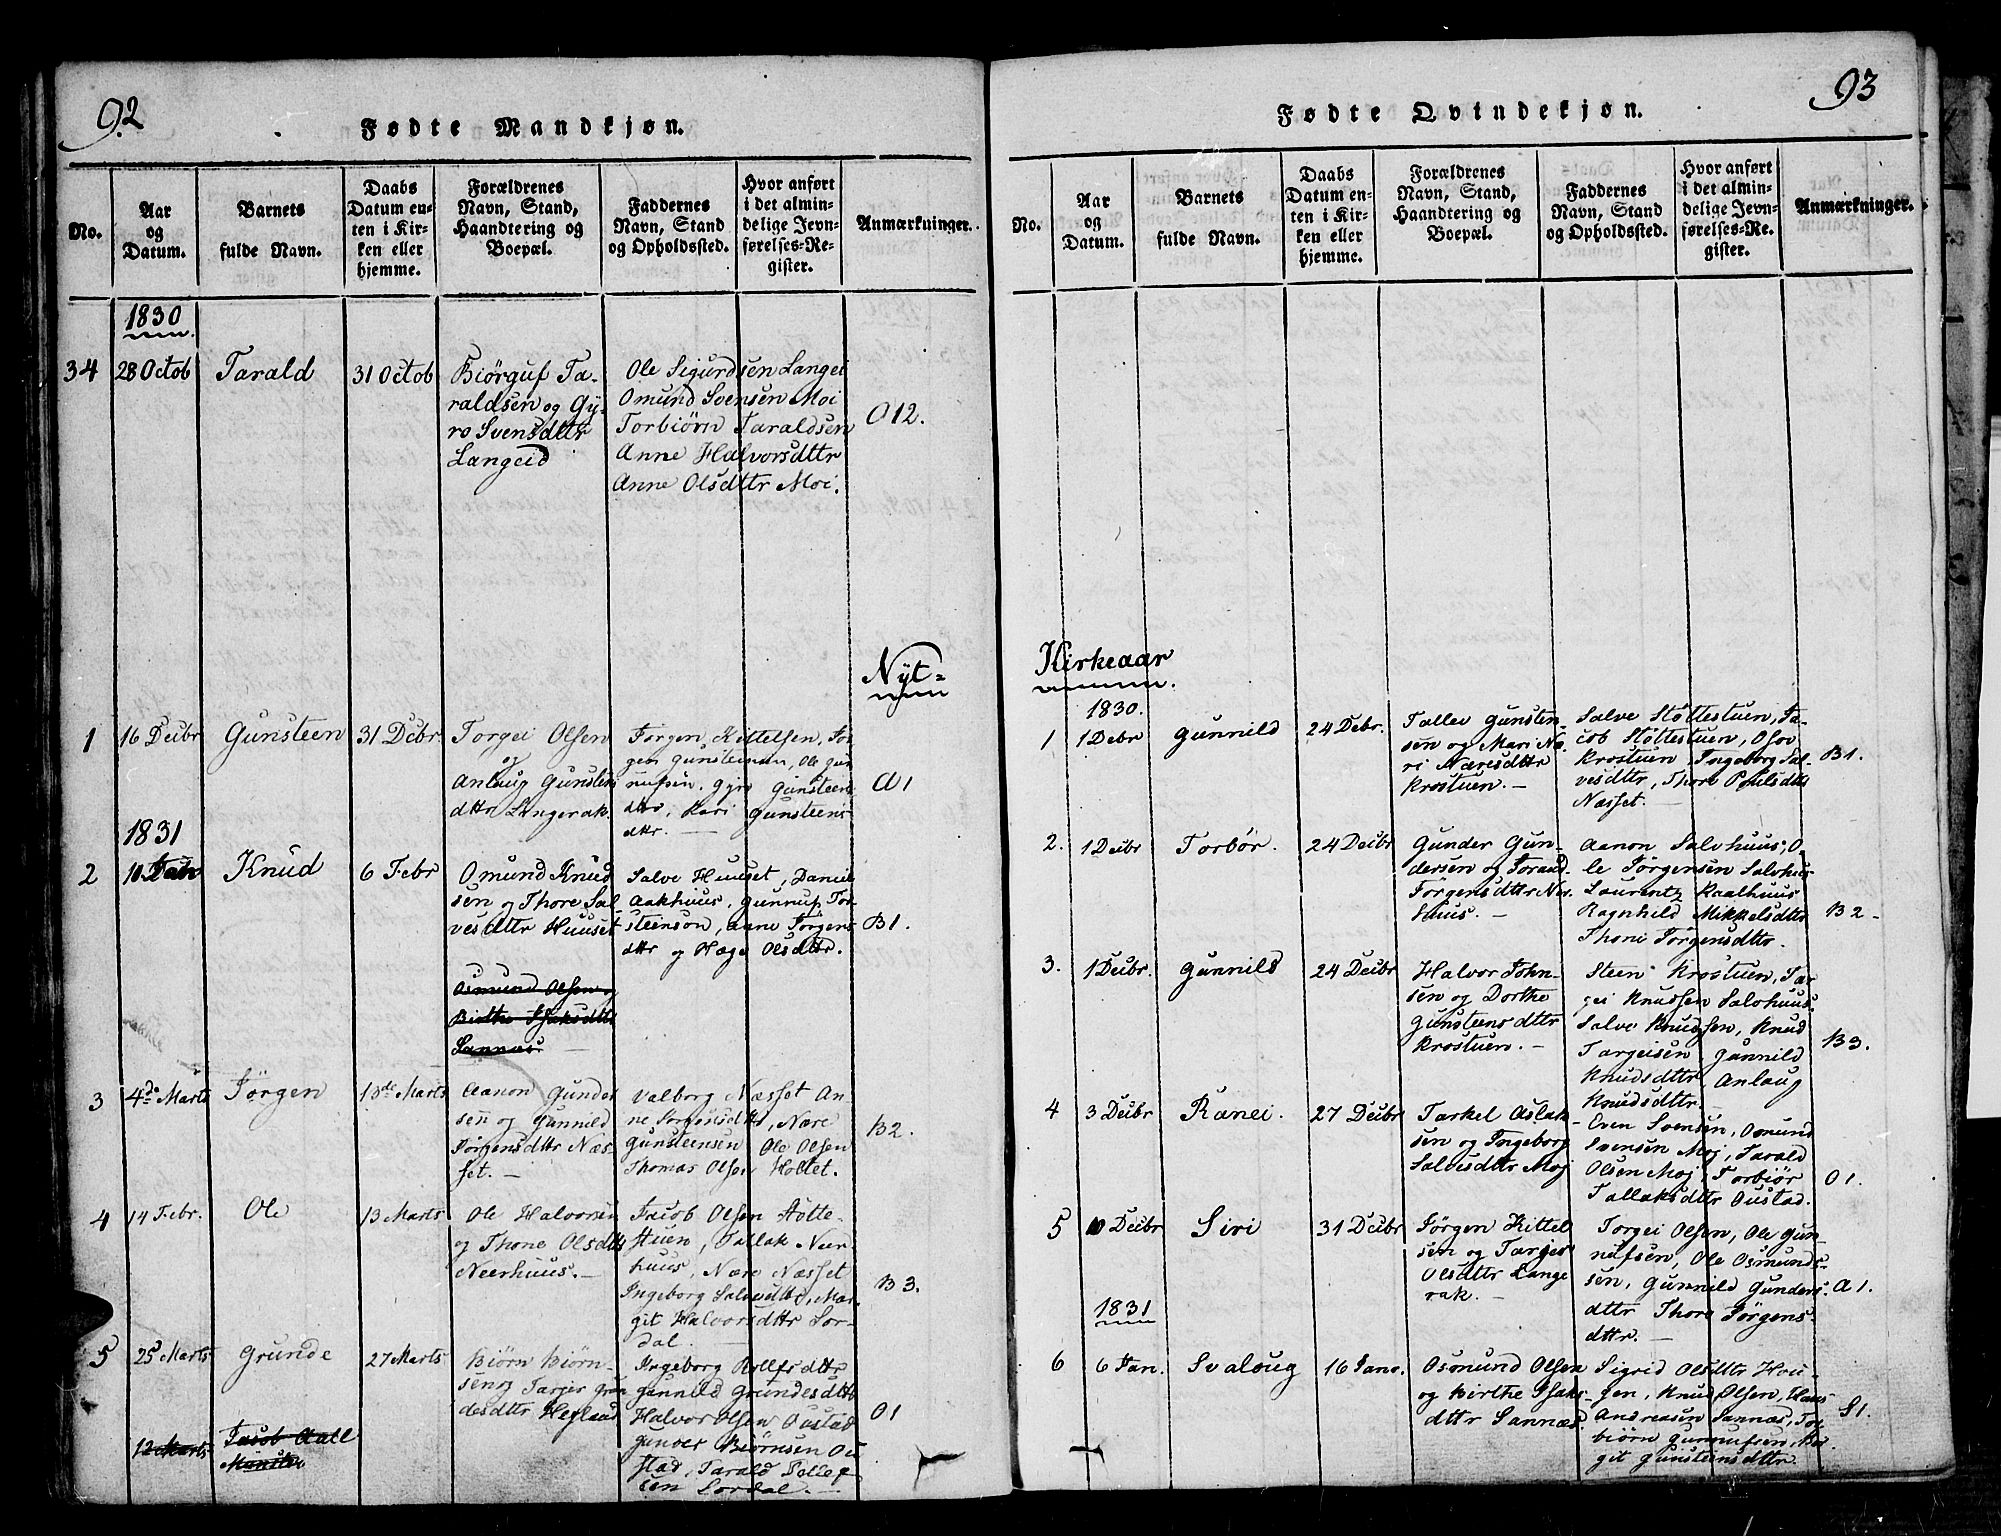 92
Fødte Mandkjøn.
No.
Aar
og
Datum.
Barnets
fulde Navn.
Daabs
Datum en-
ten i Kir-
ken eller
hjemme.
Forældrenes
Navn, Stand,
Haandtering og
Boepæl.
Faddernes
Navn, Stand
og Opholdssted.
Hvor anført
i det almin-
delige Jevn-
førelses-Re-
gister.
Anmærkninger.
1830
34
28 Octob
Tarald
31 Octob
Biörguf Ta-
raldsen og Gy-
ro Svensdttr
Langeid
Ole Sigurdsen Langei
Omund Svensen Moi
Torbiörn Taraldsen
Anne Halvorsdttr
Anne Olsdttr Moi.
O12.
Nyt=
1
16 Decbr
Gunsteen
31 Dcbr.
Torgei Olsen
og
Anlaug Gunsteins
dttr Langerak.
Jørgen Kittelsen, Tor
geir Gunsteinsen, Ole Gun
nufsen, Gyro Gunsteens
dttr, Kari Gunsteens
dttr.
A1
1831
2
10 Jan
Knud
6 Febr
Omund Knud
sen og Thore Sal
vesdttr Huuset
Salve Huuset, Daniel
Aakhuus, Gunnuf Tor
steenson, Anne Jørgens
dttr og Hæge Olsdttr.
B1.
Osmund Olsen og
Birthe Isaksdttr
Sannæs.
3
4de Marts
Jørgen
13de Marts
Aanon Gunder
sen og Gunnild
Jørgensdttr Næs-
set.-
Valborg Næsset An-
ne Jørgensdttr, Nære
Gunsteensen Ole Olsen
Thomas Olsen Holtet.
B2.
4
14 Febr.
Ole
13 Marts
Ole Halvorsen
og Thone Olsdttr
Neerhuus.-
Jacob Olsen Støtte-
stuen, Tallak Neer-
huus, Nære Næsset
Ingeborg Salvesdttr, Mar-
git Halvorsdttr Lor-
dal
B3.
5
25 Marts
Grunde
27 Marts
Biørn Biørn-
sen og Targer Grun
desdttr Hegland
Ingeborg Rollfsdttr
Gunnild Grundesdttr
Halvor Olsen Oustad
Gunder Biørnsen Ou
stad, Tarald Tollef
sen Lordal.-
O1
12 Marts
Jacob Aall
Münster
93
Fødte Qvindekjøn.
No.
Aar
og
Datum.
Barnets
fulde Navn.
Daabs
Datum en-
ten i Kir-
ken eller
hjemme.
Forældrenes
Navn, Stand,
Haandtering og
Boepæl.
Faddernes
Navn, Stand
og Opholdssted.
Hvor anført
i det almin-
delige Jevn-
førelses-Re-
gister.
Anmærkninger.
Kirkeaar
1830.
1
1 Debr
Gunnild
24 Debr.
Tallev Gunsten-
sen og Mari Næ-
ri Næresdttr
Krostuen.-
Salve Støttestuen, Ja-
cob Støttestuen, Osov
Krostuen, Ingeborg Sal-
vesdttr, Thore Poulsdttr
Næsset.-
B1.
2.
1 Decbr
Torbør.
24 Decbr
Gunder Gun-
dersen og Torand
Jørgensdttr Ner-
huus.-
Aanon Salohuus, O-
le Jørgensen Salohuus
Laurentz Kaalhuus
Ragnhild Mikkelsdttr
Thoni Jørgensdttr.
B2-
3.
1 Decbr.
Gunnild
24 Decbr
Halvor John-
sen og Dorthe
Gunsteensdttr
Krostuen.-
Steen Krostuen, Tar-
gei Knudsen Salohuus
Salve Knudsen, Knud
Targeisen Gunnild
Knudsdttr Anlaug
Knudsdttr.
B3.
4
3 Decbr
Ranei.
27 Decbr
Tarkel Aslak-
sen og Ingeborg
Salvesdttr Moj
Even Svensen, Osmund
Svensen Moj, Tarald
Olsen Moj, Torbiør
Tallaksdttr Oustad.
O1.
5
10 Decbr
Siri
31 Decbr
Jørgen Kittel
sen og Targer
Olsdttr Lange
rak.-
Torgei Olsen, Ole Gun-
nufsen, Ole Osmunds-
sen, Gunnild Gunders-
dttr Thore Jørgens-
dttr.-
A1.
1831
6
6 Jan.
Svaloug
16 Janv.
Osmund Olsen
og Birthe Isaks-
dttr Sannæs
Sigrid Olsdttr Hou-
gen, Knud Olsen, Hans
Andreasen Sannæs, Tor
biørn Gunnufsen, Mar
git Gunsteensdttr
S1.